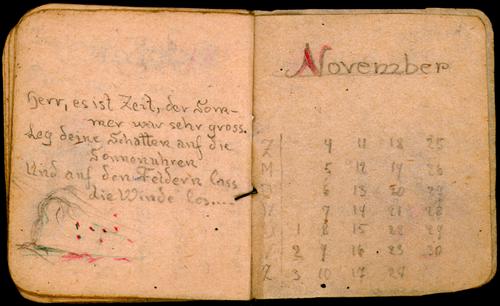 Herr, es ist Zeit, der Som-
mer war sehr gross.
Leg deine Schatten auf die
Sonnenuhren
Und auf den Feldern lass
die Winde los....
November
Z 4 11 18 25
M 5 12 19 26
D 6 13 20 27
W 7 14 21 28
D 1 8 15 22 29
V 2 9 16 23 30
Z 3 10 17 24